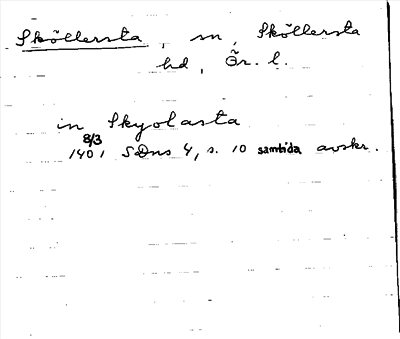 Sköllersta, sn, Sköllersta
hd, Ör. l.
in Skyolasta
8/3
1401 SDns 4, s. 10 samtida avskr.